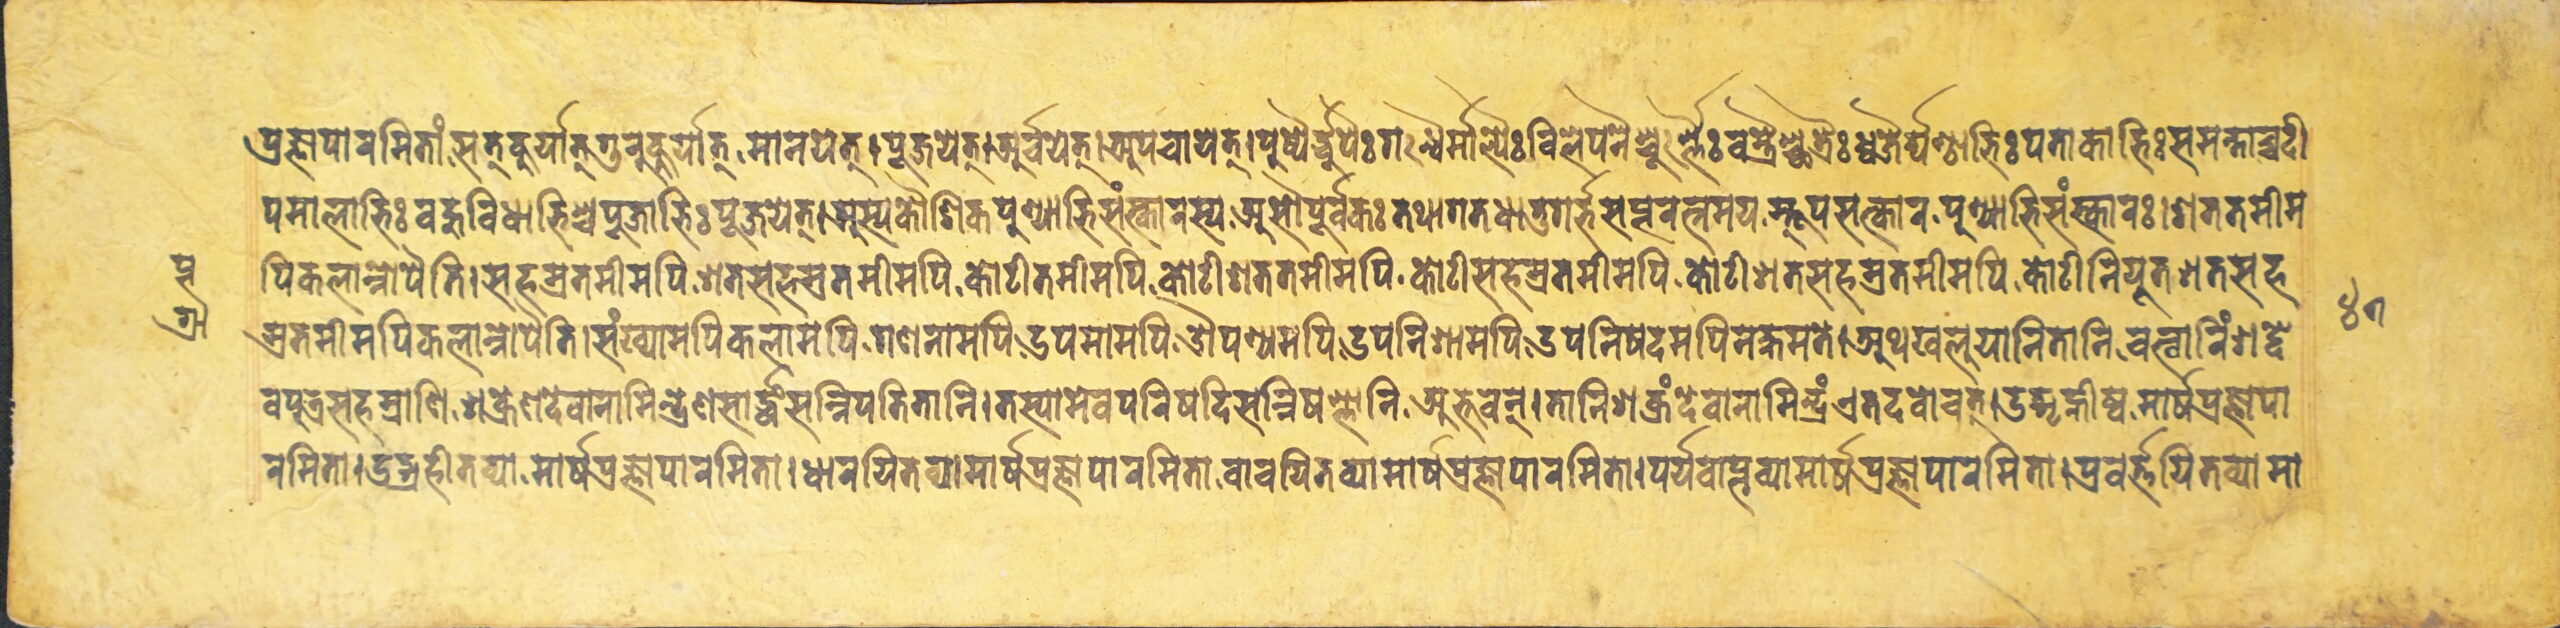 प्रज्ञापारमितां सत्कुर्यात् गुरुकुर्यात् मानयेत् । पूजयेत् । अर्चयेत् । अपचायेत् । पुष्पैर्द्धूपैः गन्धैर्माल्यैः विलेपनैश्चूर्ण्णैः वस्त्रैश्छत्रैः ध्वजैर्घण्टाभिः पताकाभिः समन्ताच्चदी
पमालाभिः बहुविधाभिश्च पूजाभिः पूजयेत् । अस्य कौशिक पुण्याभिसंस्कारस्य असौ पूर्वकः तथागतधातुगर्भ सप्तरत्नमय स्तूपसत्कार पुण्याभिसंस्कारः । शततमीम
पिकलान्नोपैति । सहस्रतमीमपि शतसहस्रतमीमपि कोटीतमीमपि कोटीशततमीमपि कोटीसहस्रतमीमपि कोटीशतसहस्रतमीमपि कोटीनियूतशतसह
स्रतमीमपिकलान्नोपैति । संख्यामपिकलामपि गणनामपि उपमामपि औपम्यमपि उपनिशामपि उपनिषदमपिनक्षमते । अथखलुयानितानि चत्वारिंशद्दे
वपुत्रसहस्राणि शक्रेणदेवानामिन्द्रेणसार्द्धं सन्निपतितानि । तस्यामेवपरिषदिसन्निषण्णानि अभूवन् । तानिशक्रंदेवानामिन्द्रंएतदवोचत् । उद्गृह्णीष्व मार्षप्रज्ञापा
रमिता । उद्ग्रहीतव्या मार्षप्रज्ञापारमिता । धारयितव्या मार्षप्रज्ञापारमिता वाचयितव्या मार्षप्रज्ञापारमिता । पर्यवाप्तव्या मार्षप्रज्ञापारमिता । प्रवर्त्तयितव्या मा